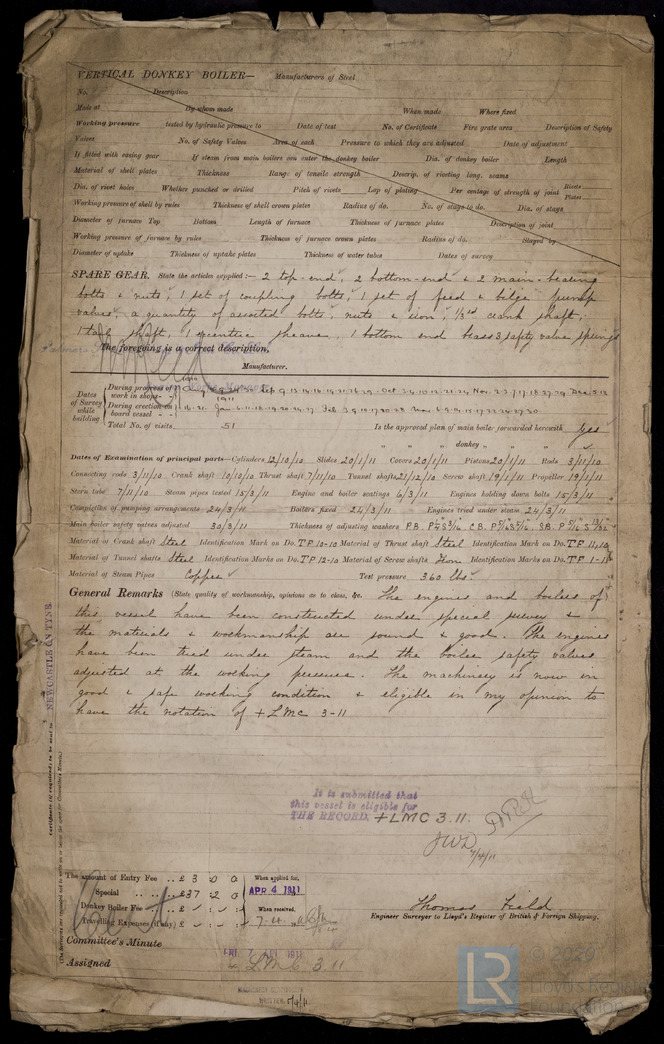 VERTICAL DONKEY BOILER— Manufacturers of Steel
No. Description
Made at By whom made When made Where fixed
Working pressure tested by hydraulic pressure to Date of test No. of Certificate Fire grate area Description of Safety
Valves No. of Safety Valves Area of each Pressure to which they are adjusted Date of adjustment
If fitted with easing gear If steam from main boilers can enter the donkey boiler Dia. of donkey boiler Length
Material of shell plates Thickness Range of tensile strength Descrip. of riveting long. seams
Dia. of rivet holes Whether punched or drilled Pitch of rivets Lap of plating Per centage of strength of joint Rivets Plates
Working pressure of shell by rules Thickness of shell crown plates Radius of do. No. of stays to do. Dia. of stays
Diameter of furnace Top Bottom Length of furnace Thickness of furnace plates Description of joint
Working pressure of furnace by rules Thickness of furnace crown plates Radius of do. Stayed by
Diameter of uptake Thickness of uptake plates Thickness of water tubes Dates of survey
SPARE GEAR. State the articles supplied:— 2 top-end, 2 bottom-end & 2 main-bearing
bolts & nuts, 1 set of coupling bolts, 1 set of feed & bilge pump
valves, a quantity of assorted bolts, nuts & iron, 1/3rd crank shaft,
1 tail shaft, 1 eccentric sheave, 1 bottom end brass 3 safety value springs
The foregoing is a correct description,
Manufacturer.
Dates of Survey while building
During progress of work in shops - -
During erection on board vessel - -
Total No. of visits 51 Is the approved plan of main boiler forwarded herewith Yes
" " donkey " " "
Dates of Examination of principal parts—Cylinders 12/10/10 Slides 20/1/11 Covers 20/1/11 Pistons 20/1/11 Rods 3/11/10
Connecting rods 3/11/10 Crank shaft 10/10/10 Thrust shaft 7/11/10 Tunnel shafts 21/12/10 Screw shaft 19/1/11 Propeller 19/1/11
Stern tube 7/11/10 Steam pipes tested 15/3/11 Engine and boiler seatings 6/3/11 Engines holding down bolts 15/3/11
Completion of pumping arrangements 24/3/11 Boilers fixed 24/3/11 Engines tried under steam 24/3/11
Main boiler safety valves adjusted 30/3/11 Thickness of adjusting washers
Material of Crank shaft Steel Identification Mark on Do. TF 10-10 Material of Thrust shaft Steel Identification Mark on Do. TF 11,10
Material of Tunnel shafts Steel Identification Marks on Do. TF 12-10 Material of Screw shafts Iron Identification Marks on Do. TF 1-11
Material of Steam Pipes Copper Test pressure 360 lbs.
General Remarks (State quality of workmanship, opinions as to class, &c. The engines and boilers of
this vessel have been constructed under special survey &
the materials & workmanship are sound & good. The engines
have been tried under steam and the boiler safety valves
adjusted at the working pressures. The machinery is now in
good & safe working condition & eligible in my opinion to
have the notation of +LMC 3-11
It is submitted that
this vessel is eligible for
THE RECORD. +LMC 3.11.
JWD
7/4/11
NEWCASTLE ON TYNE
The amount of Entry Fee .. £ 3 : 0 : 0 When applied for,
Special .. .. £ 37 : 2 : 0 APR 4 1911
Donkey Boiler Fee .. £ When received,
Travelling Expenses (if any) £
Thomas Field
Engineer Surveyor to Lloyd's Register of British & Foreign Shipping.
Committee's Minute FRI 7 APR 1911
Assigned + LMC 3.11
© 2020
LR
Lloyd's Register
Foundation